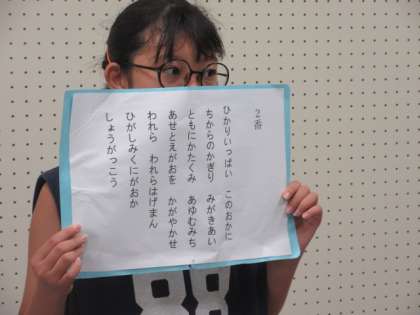 2番
ひかりいっぱい このおかに
ちからのかぎり みがきあい
ともにかたくみ あゆむみち
あせとえがおを かがやかせ
われら われらはげまん
ひがしみくにがおか
しょうがっこう
88